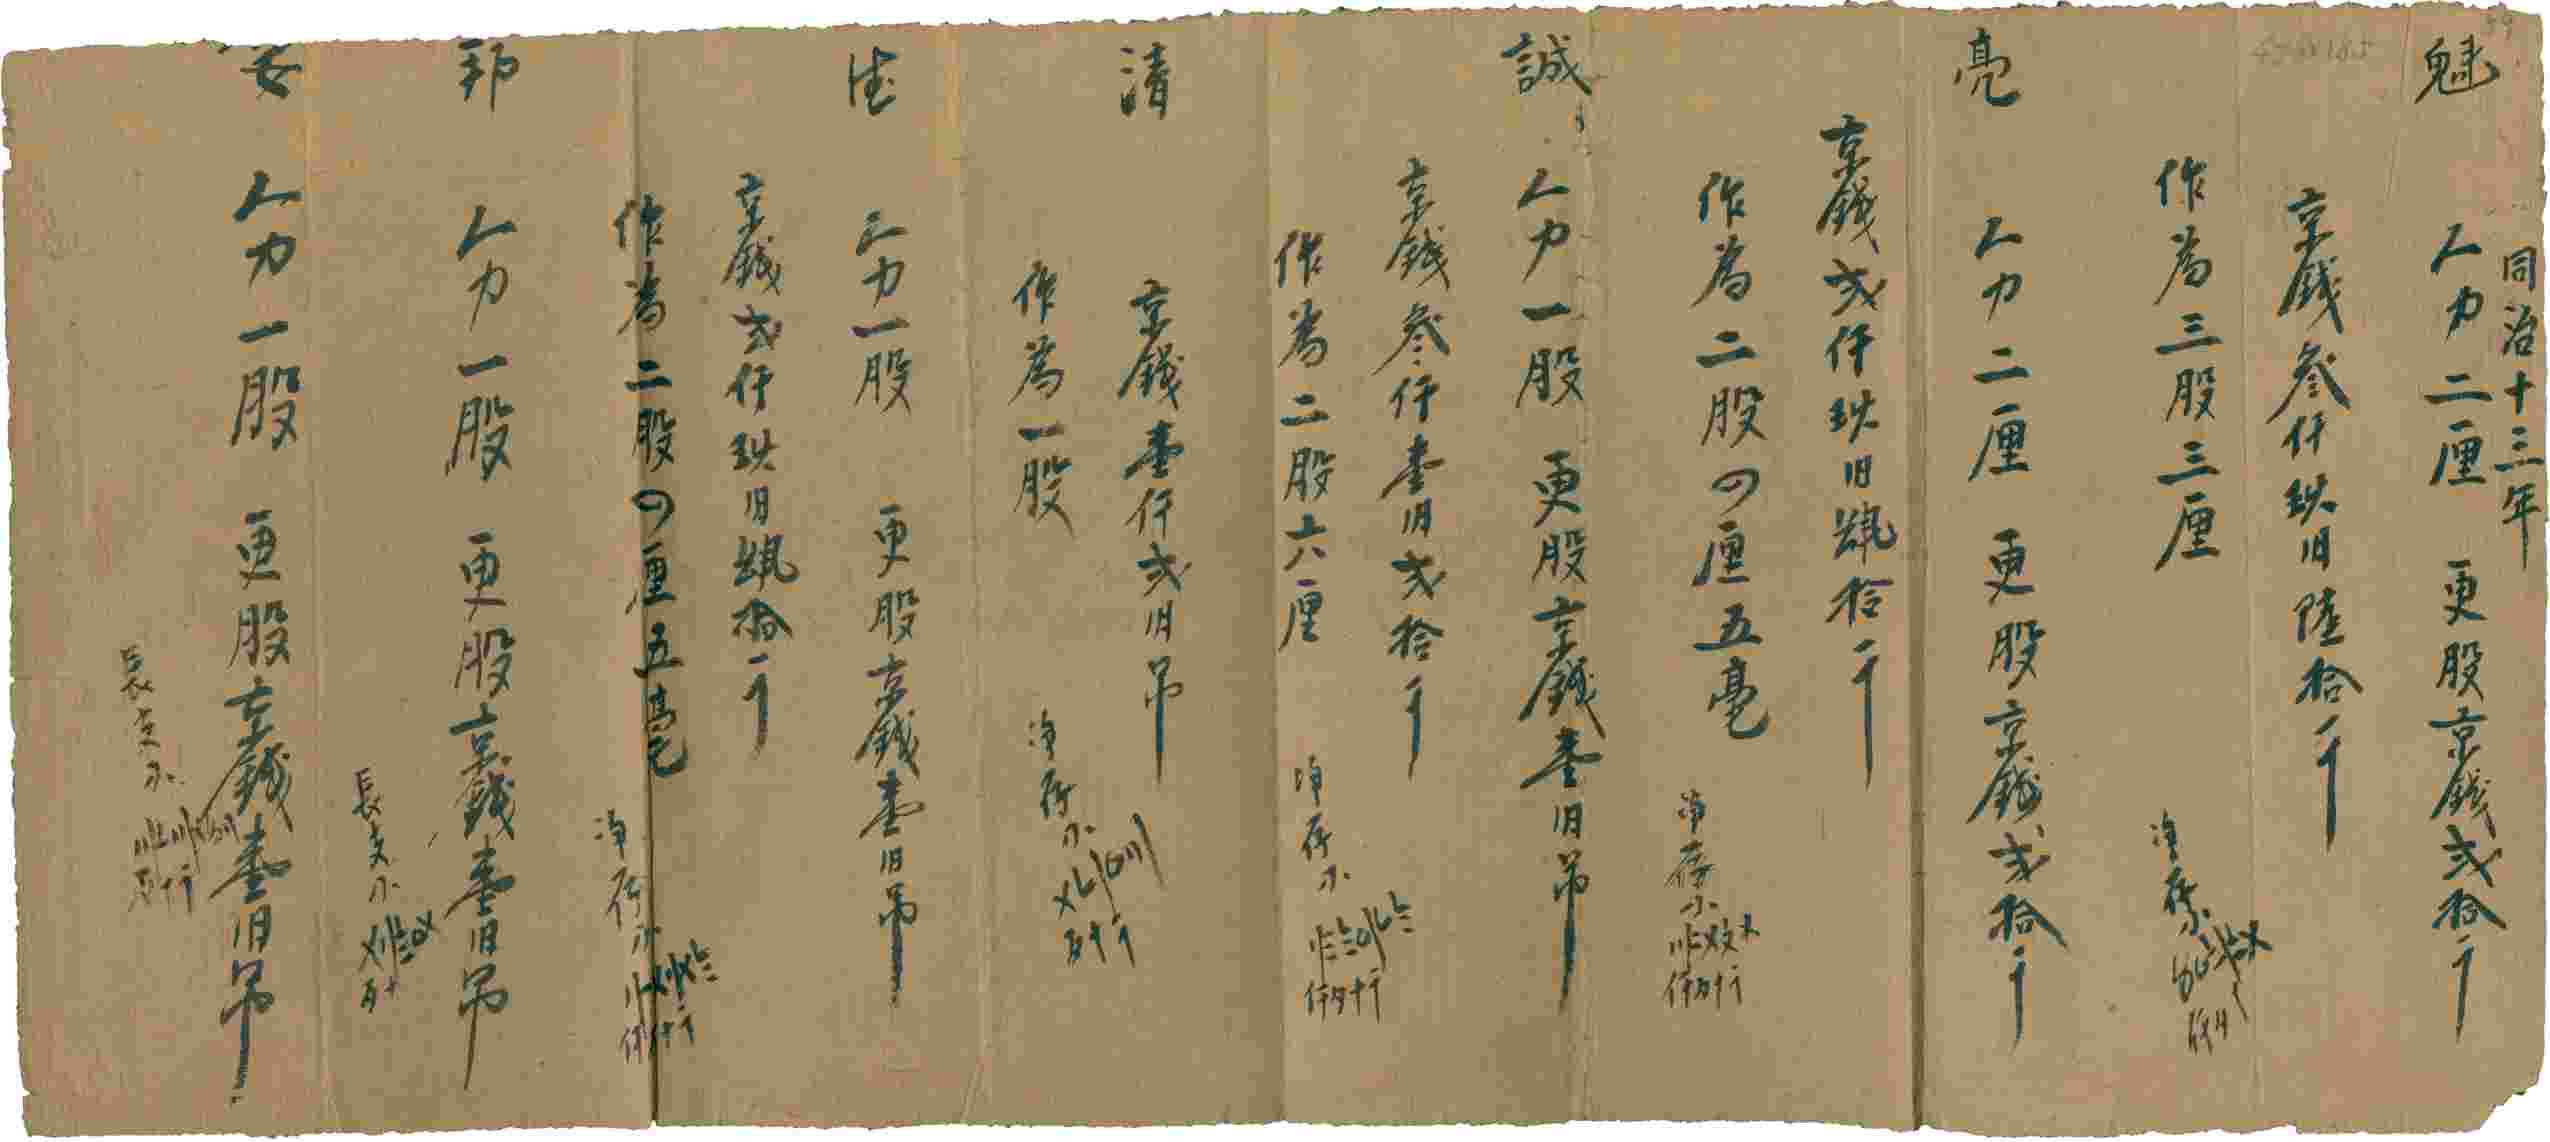 同治十三年
魁 人力二厘 更股京錢弍拾千
京錢叄仟玖旧陸拾千
作為三股三厘
淨存
亮 人力二厘 更股京錢弍拾千
京錢弍仟玖旧肆拾千
作為二股〇厘五毫
淨存
誠 人力一股 更股京錢壹旧吊
京錢叄仟壹旧弍拾千
作為二股六厘
淨存
清 京錢壹仟弍旧吊
作為一股
淨存
人力一股 更股京錢壹旧吊
京錢弍仟玖旧肆拾千
作為二股〇厘五毫
淨存
邦 人力一股 更股京錢壹旧吊
長支
安 人力一股 更股京錢壹旧吊
長支